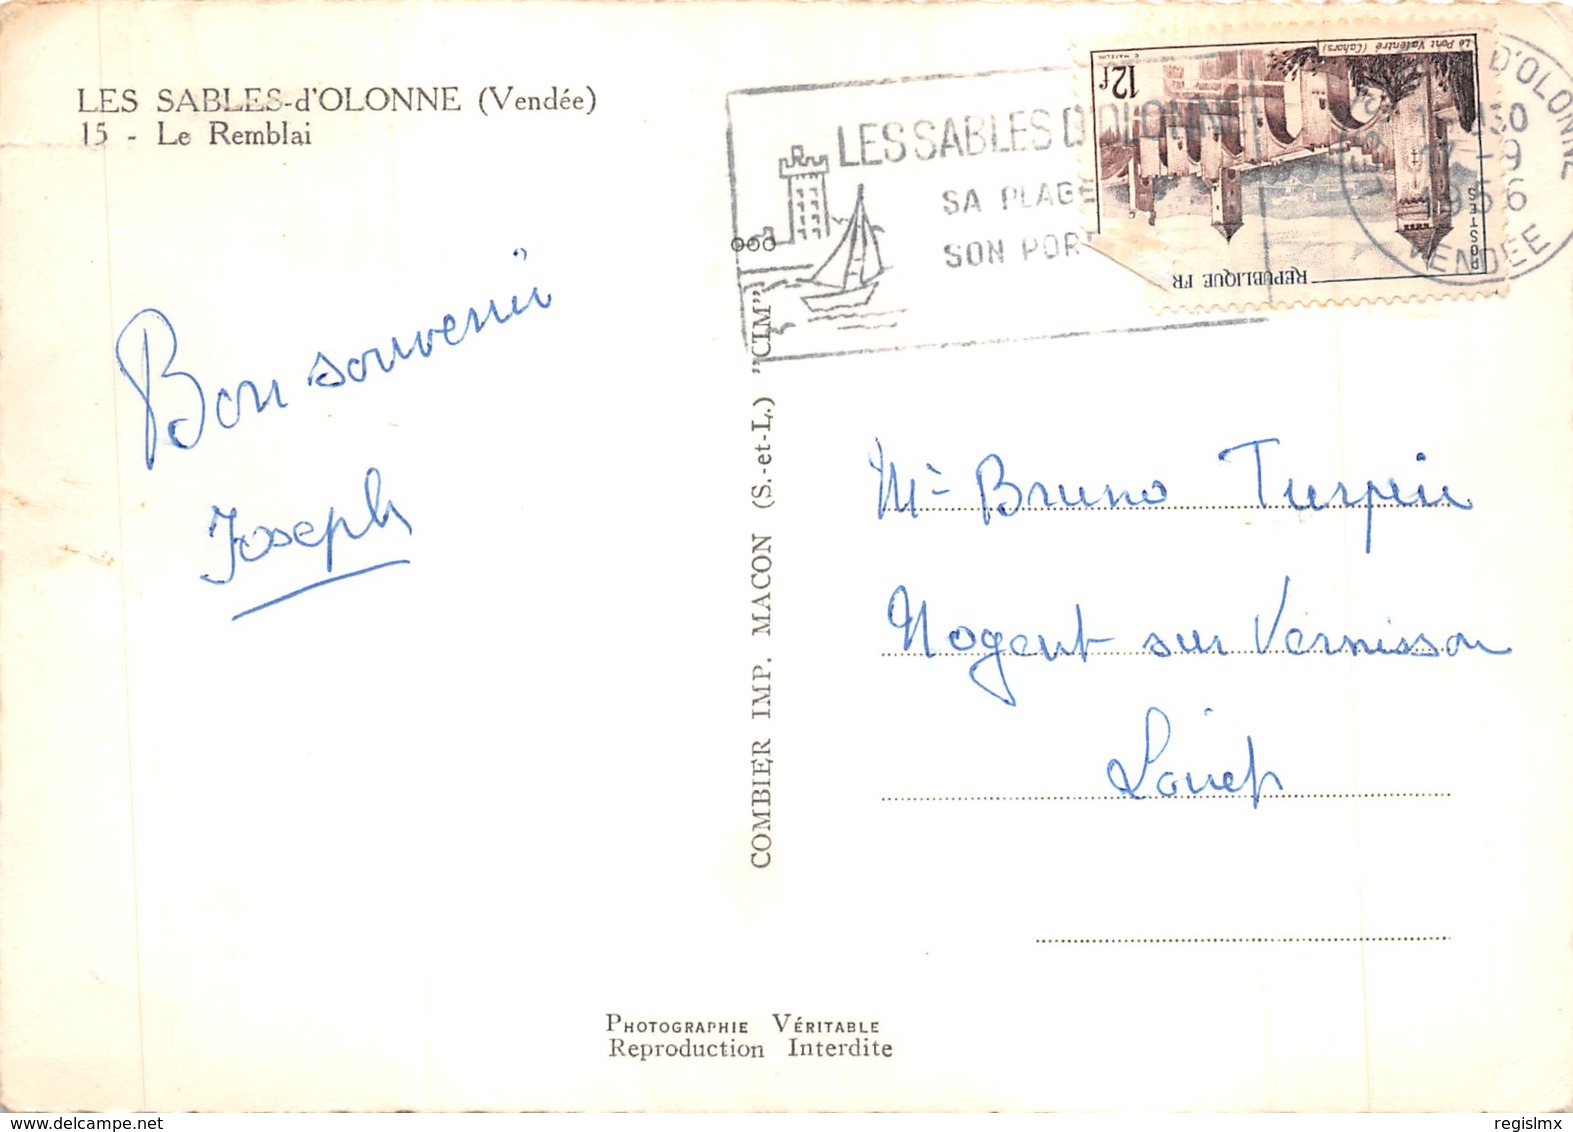 LES SABLES-d'OLONNE (Vendée)
15 - Le Remblai
Bon souvenir
Joseph
COMBIER IMP. MACON (S.-et-L.) "CIM"
LES SABLES D'OLONNE
SA PLAGE
SON PORT
Le Pont Valentré (Cahors)
12f
POSTES
REPUBLIQUE FR
D'OLONNE
30
17-9
1956
VENDEE
Mr Bruno Turpin
Nogent sur Vernisson
Loiret
PHOTOGRAPHIE VÉRITABLE
Reproduction Interdite
delcampe.net
regislmx